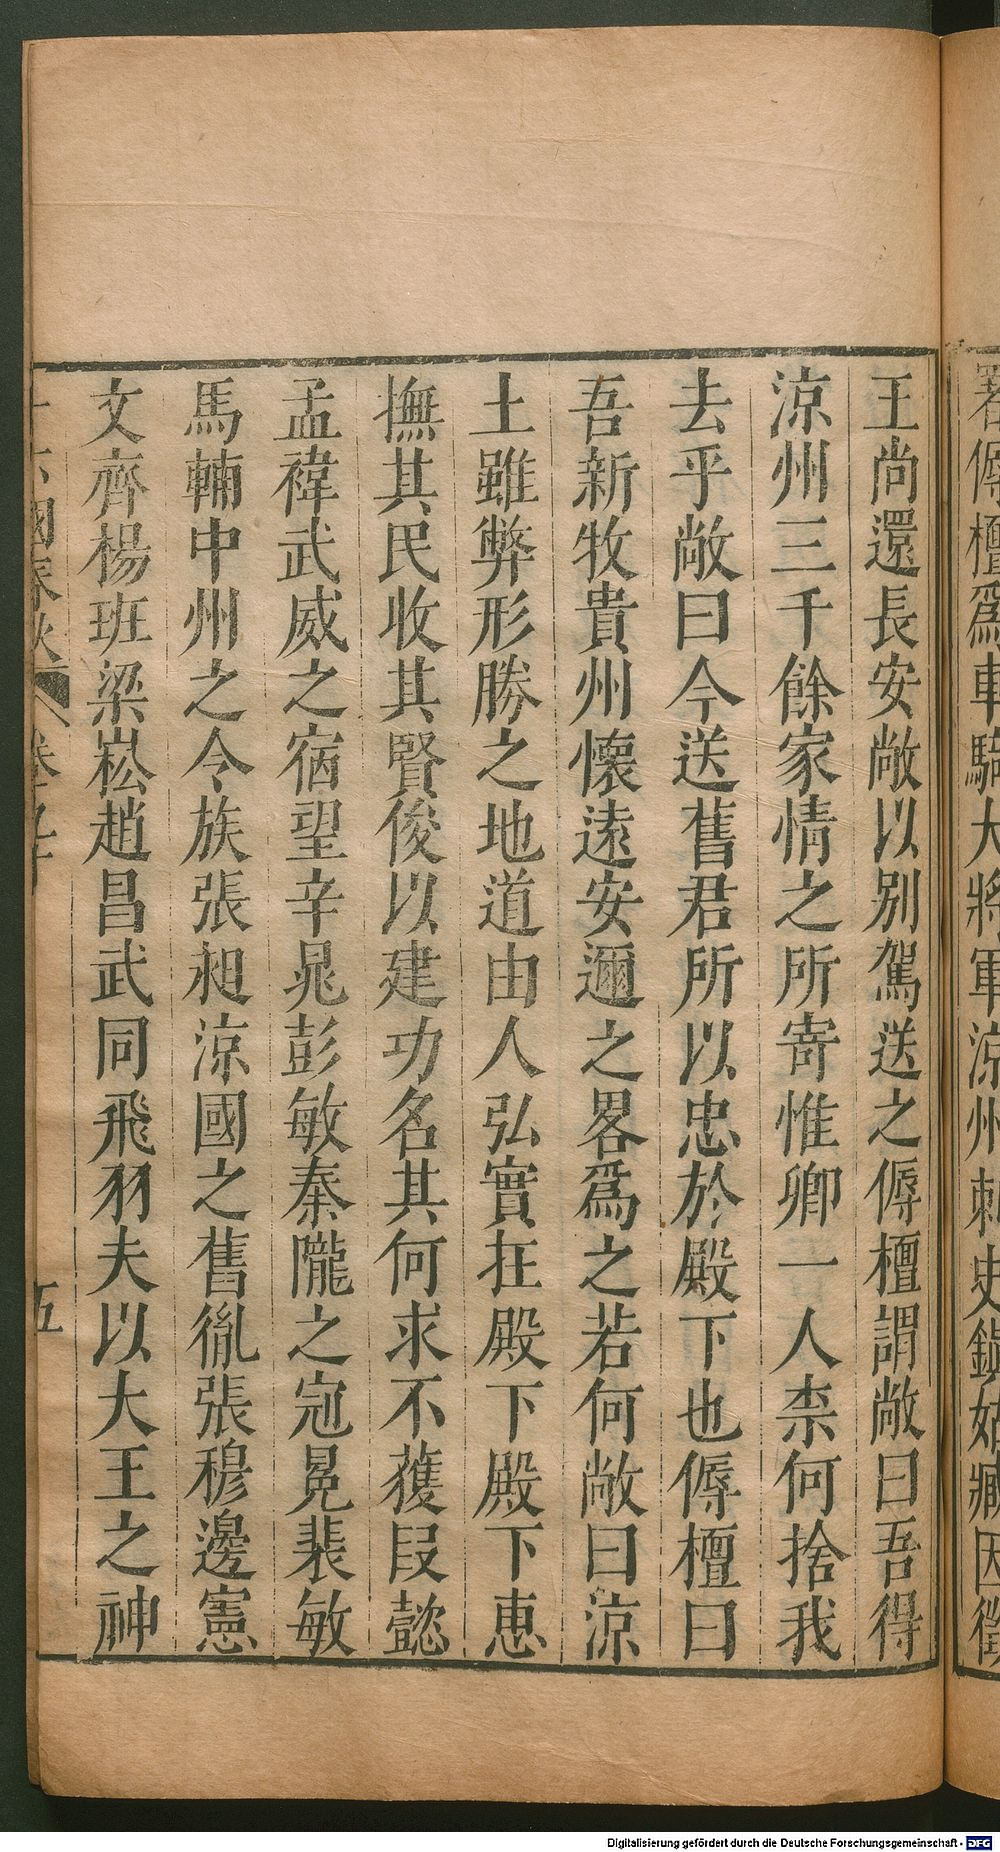 署傉檀爲車騎大將軍涼州刺史鎭姑臧因徵
王尚還長安敞以別駕送之傉檀謂敞曰吾得
涼州三千餘家情之所寄惟卿一人柰何捨我
去乎敞曰今送舊君所以忠於殿下也傉檀曰
吾新牧貴州懷遠安邇之畧爲之若何敞曰涼
土雖弊形勝之地道由人弘實在殿下殿下惠
撫其民收其賢俊以建功名其何求不獲段懿
孟禕武威之宿望辛晁彭敏秦隴之冠冕裴敏
馬輔中州之令族張昶涼國之舊胤張穆邊憲
文齊楊班梁崧趙昌武同飛羽夫以大王之神
十六國春秋 卷
五
Digitalisierung gefördert durch die Deutsche Forschungsgemeinschaft - DFG